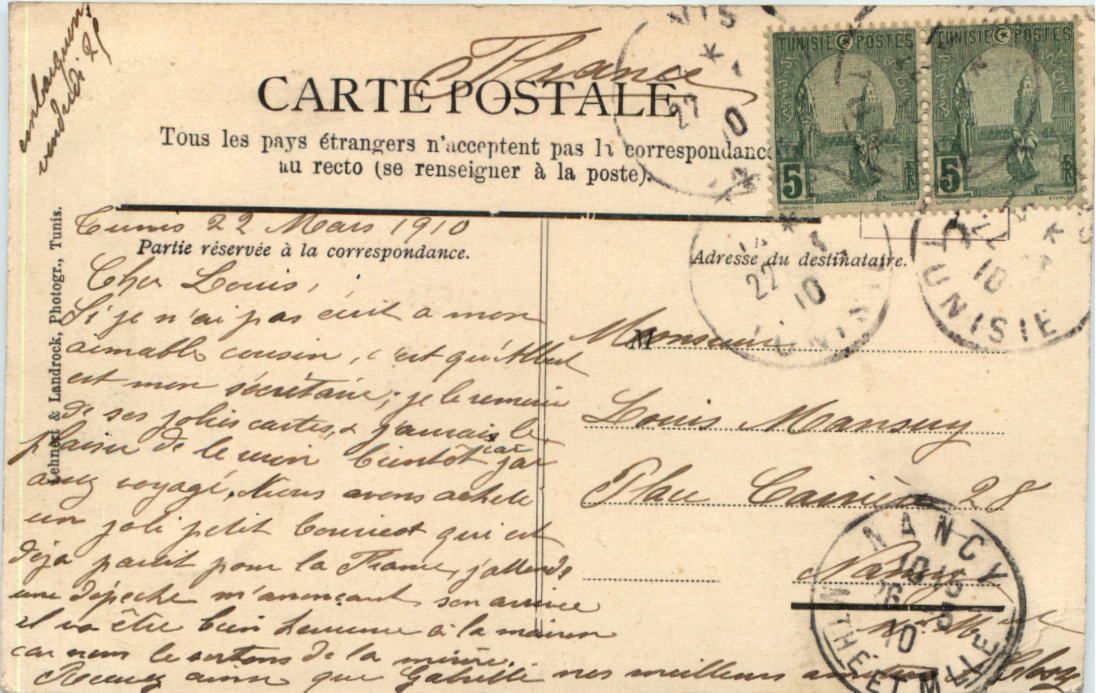 embarquons
vendredi 25
France
CARTE POSTALE
Tous les pays étrangers n'acceptent pas la correspondance
au recto (se renseigner à la poste).
TUNISIE POSTES
5
TUNISIE POSTES
5
Tunis 22 Mars 1910
Partie réservée à la correspondance.
Adresse du destinataire.
Lehnert & Landrock, Photogr., Tunis.
Cher Louis,
Si je n'ai pas écrit a mon
aimable cousin, c'est qu'Albert
est mon secrétaire, je le remercie
de ses jolies cartes, & j'aurais le
plaisir de le voir bientôt car j'ai
assez voyagé. Nous avons acheté
un joli petit bourricot qui est
déja partit pour la France, j'attends
une dépeche m'anonçant son arrivée
il va être bien heureux à la maison
car nous le sortons de la misère.
Recevez ainsi que Gabrielle nos meilleurs
M Monsieur
Louis Mansuy
Place Carrière 28
Nancy
Mthe et Mlle
22 3
10
TUNISIE
NANCY
10
MTHE ET MLLE